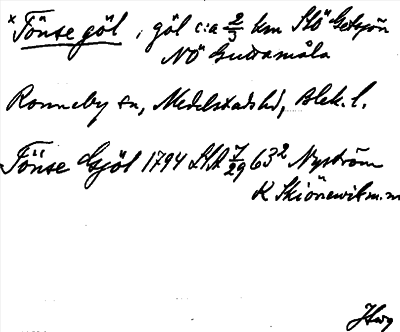 × Tönse göl, göl c:a 2/3 km SSÖ Getsjön
NÖ Guttamåla
Ronneby sn, Medelstads hd, Blek. l.
Tönse Gjöl 1794 LSA 7/29 63² Nyström
K Skiönewik m.m